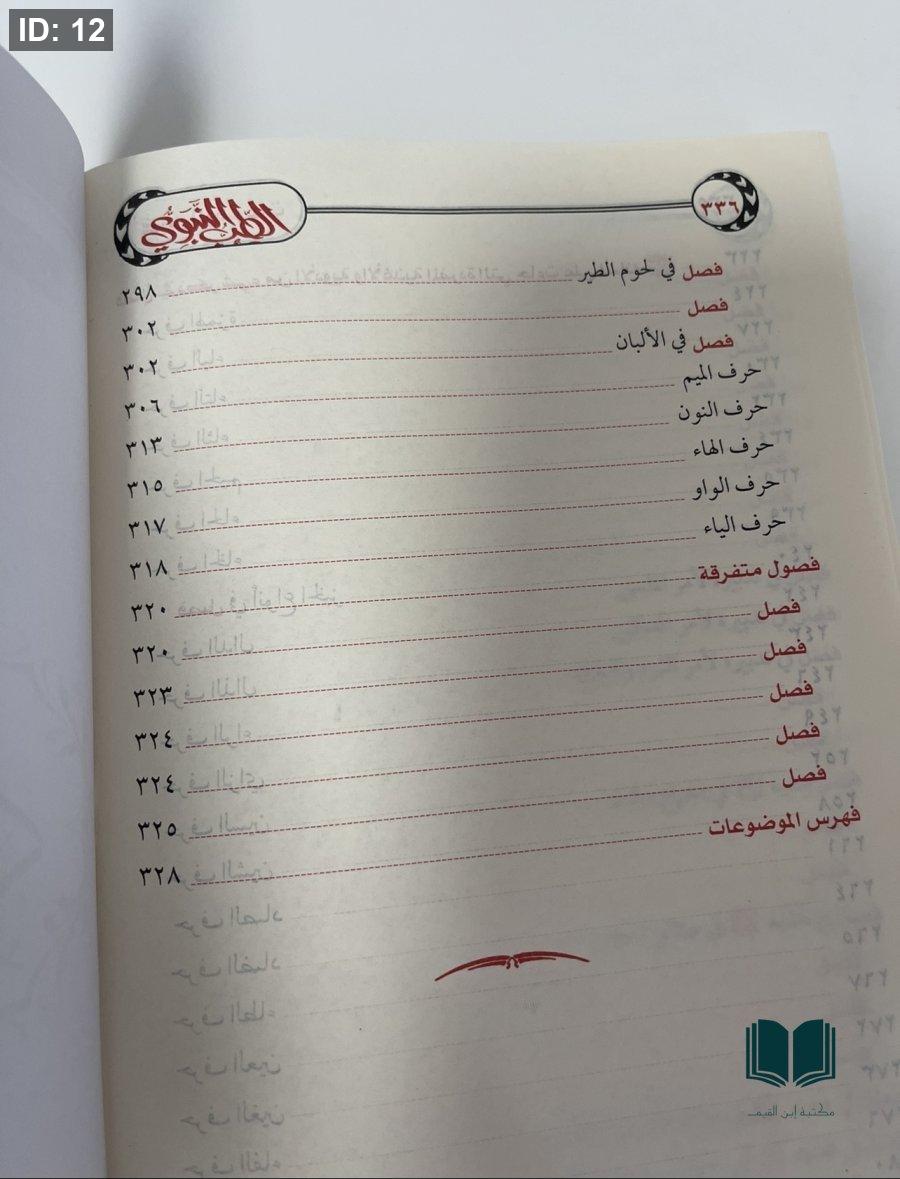 ID: 12
الطب النبوي ٣٣٦
فصل في لحوم الطير ٢٩٨
فصل ٣٠٢
فصل في الألبان ٣٠٢
حرف الميم ٣٠٦
حرف النون ٣١٣
حرف الهاء ٣١٥
حرف الواو ٣١٧
حرف الياء ٣١٨
فصول متفرقة ٣٢٠
فصل ٣٢٠
فصل ٣٢٣
فصل ٣٢٤
فصل ٣٢٤
فصل ٣٢٥
فهرس الموضوعات ٣٢٨
مكتبة إبن القيم